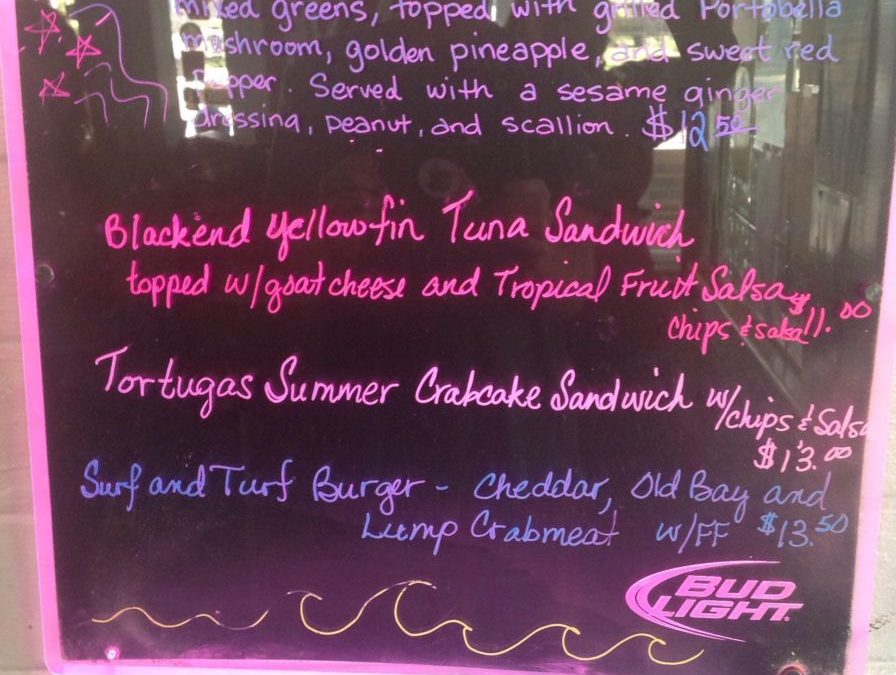 mixed greens, topped with grilled Portobella
mushroom, golden pineapple, and sweet red
pepper. Served with a sesame ginger
dressing, peanut, and scallion. $12.50
Blackend Yellowfin Tuna Sandwich
topped w/goat cheese and Tropical Fruit Salsa $11.00
chips & salsa
Tortugas Summer Crabcake Sandwich w/chips & Salsa
$13.00
Surf and Turf Burger - Cheddar, Old Bay and
Lump Crabmeat w/FF $13.50
BUD
LIGHT